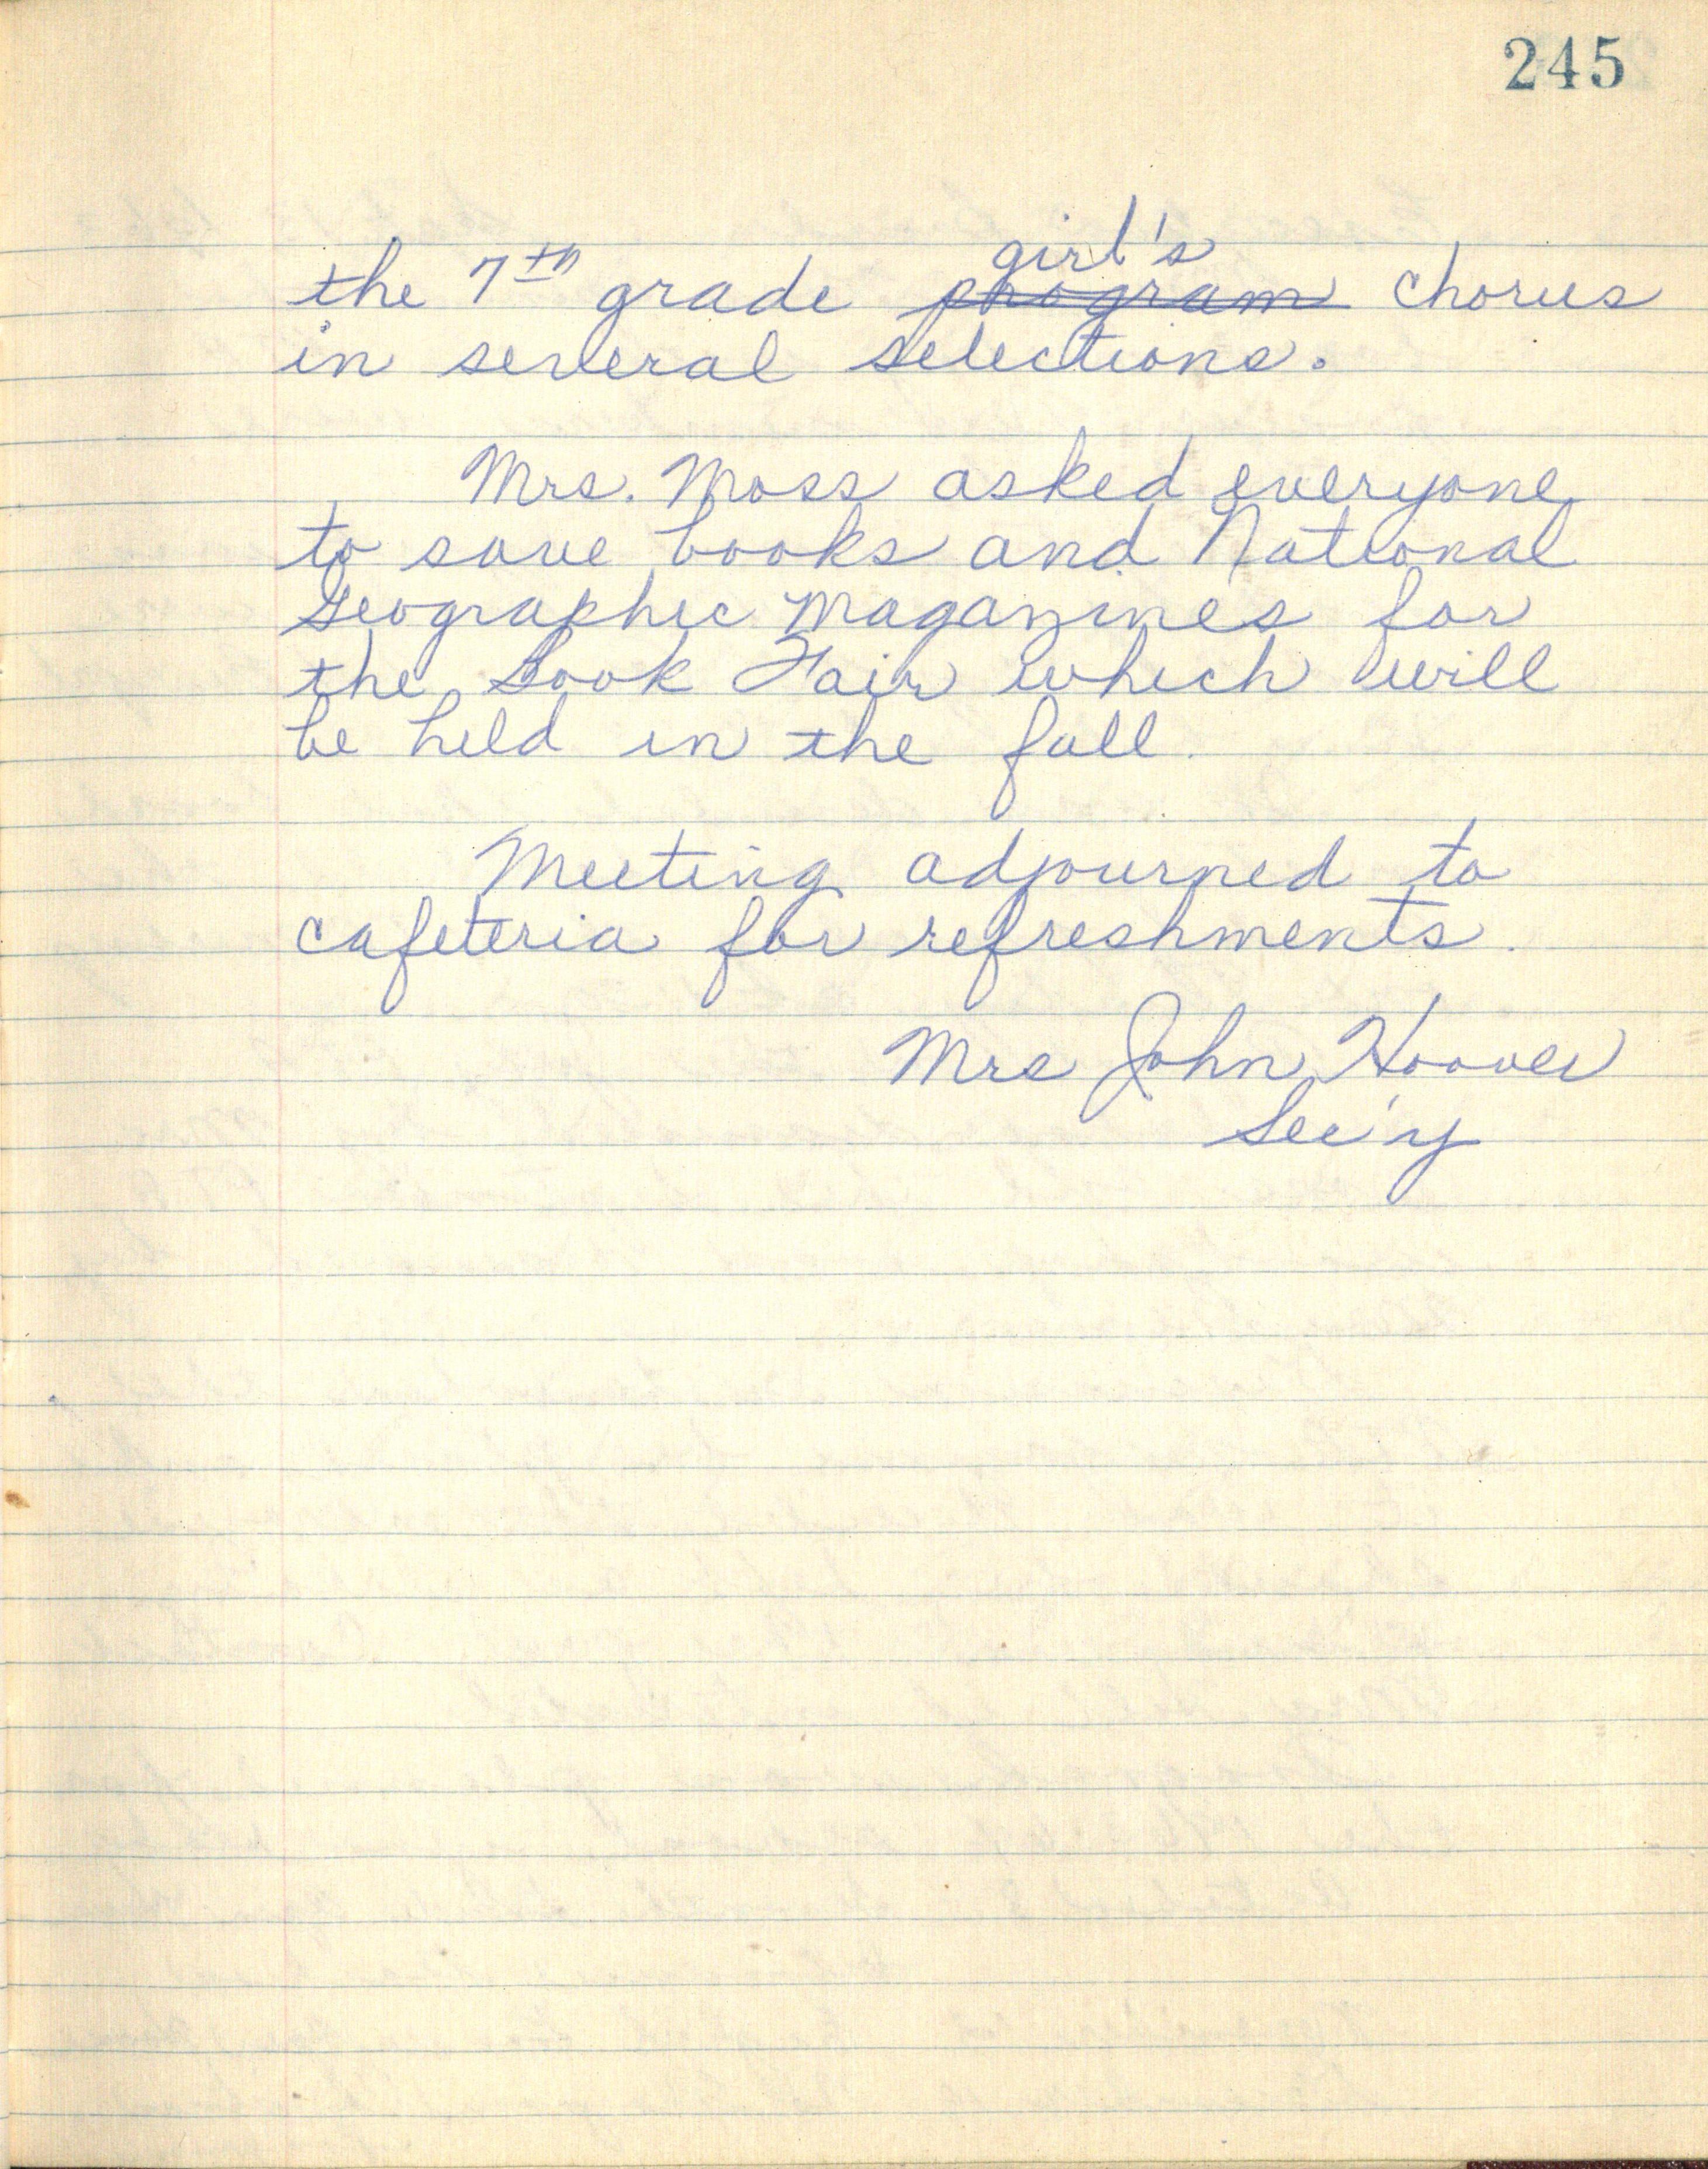 245
the 7th grade girl's ~~program~~ chorus
in several selections.
Mrs. Moss asked everyone
to save books and National
Geographic magazines for
the Book Fair which will
be held in the fall.
Meeting adjourned to
cafeteria for refreshments.
Mrs John Hoover
Sec'y